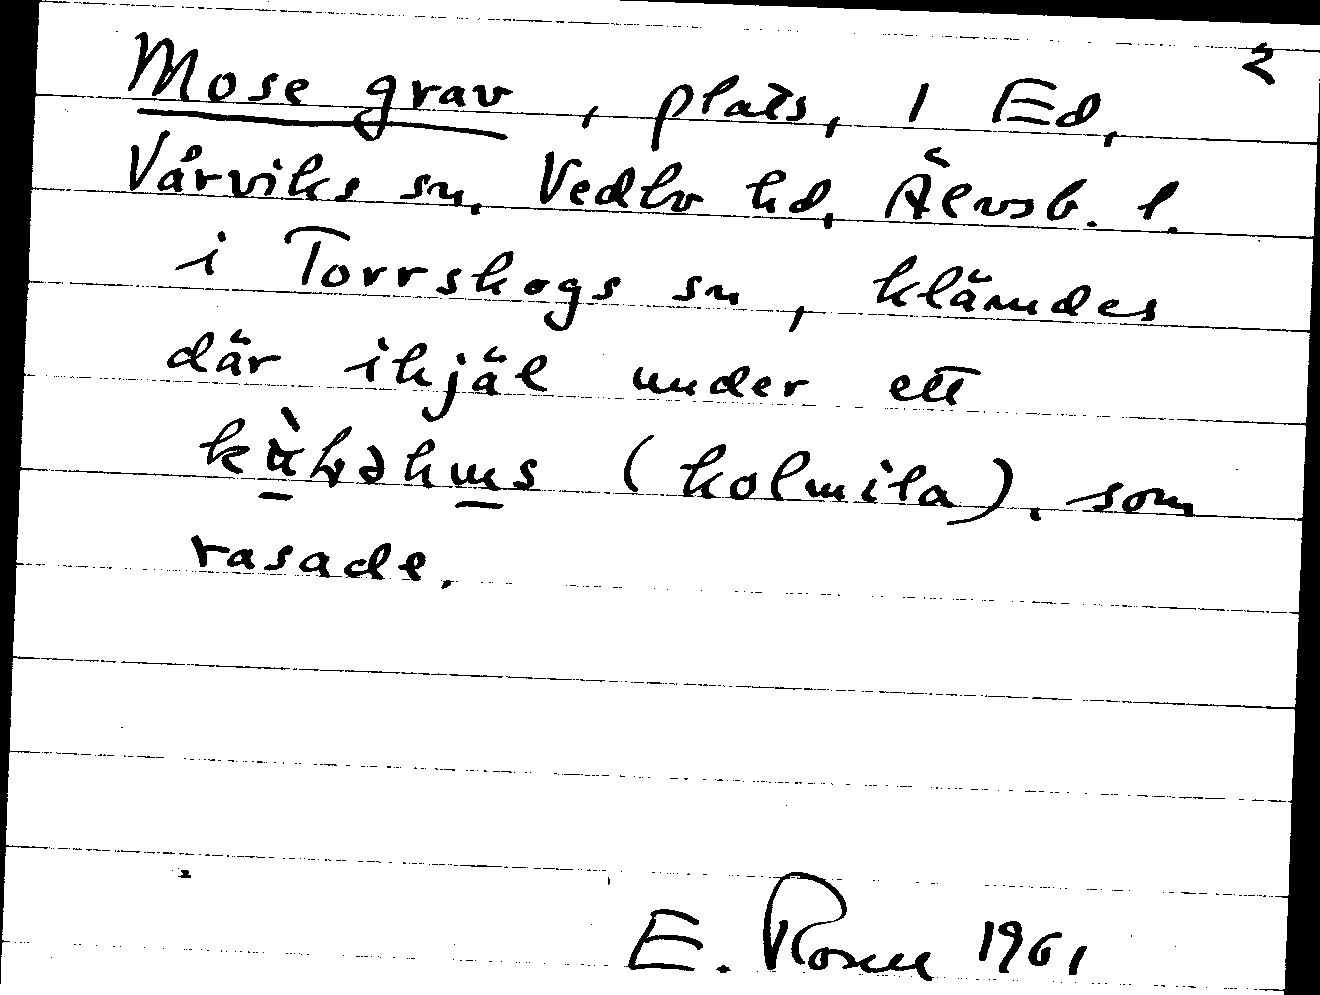 2
Mose grav, plats, 1 Ed,
Vårviks sn, Vedbo hd, Älvsb. l.
i Torrskogs sn, klämdes
där ihjäl under ett
(kolmila), som
rasade.
E. Rosell 1961